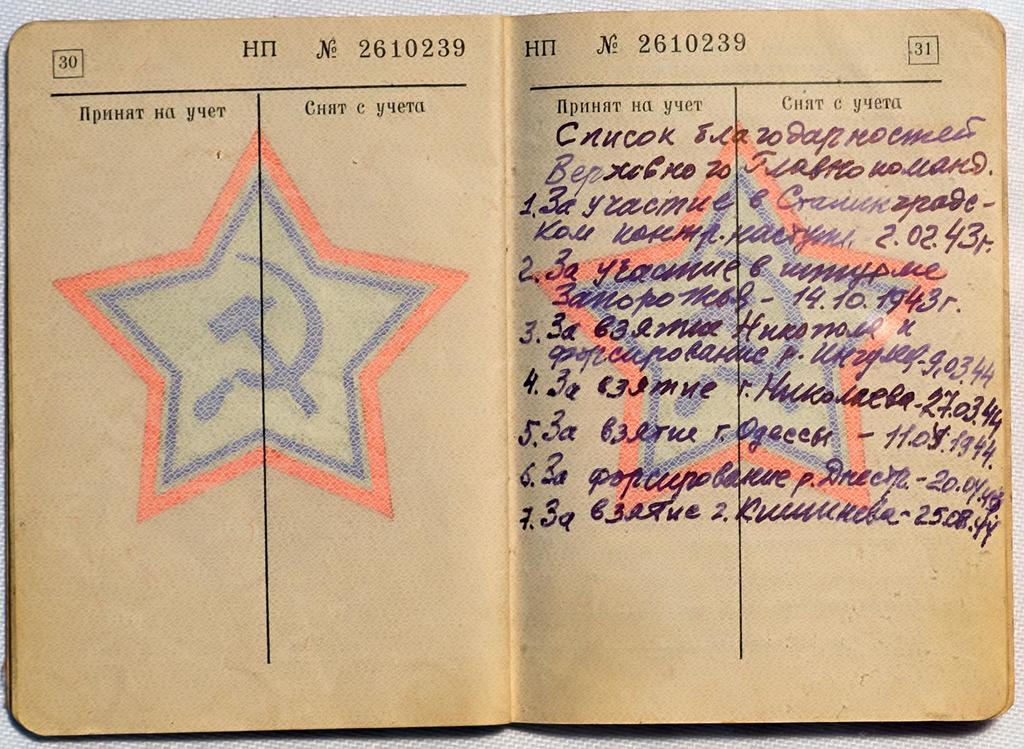 30
НП № 2610239
Принят на учет
Снят с учета
НП № 2610239
31
Принят на учет
Снят с учета
Список благодарностей
Верховного Главнокоманд.
1. За участие в Сталинградс-
ком контр.наступл. 2.02.43г.
2. За участие в штурме
Запорожья - 14.10.1943г.
3. За взятие Никополя и
форсирование р. Ингулец-9.03.44
4. За взятие г. Николаева-27.03.44
5. За взятие г. Одессы - 11.04.1944.
6. За форсирование р. Днестр.-20.04.
7. За взятие г. Кишинёва-25.08.44